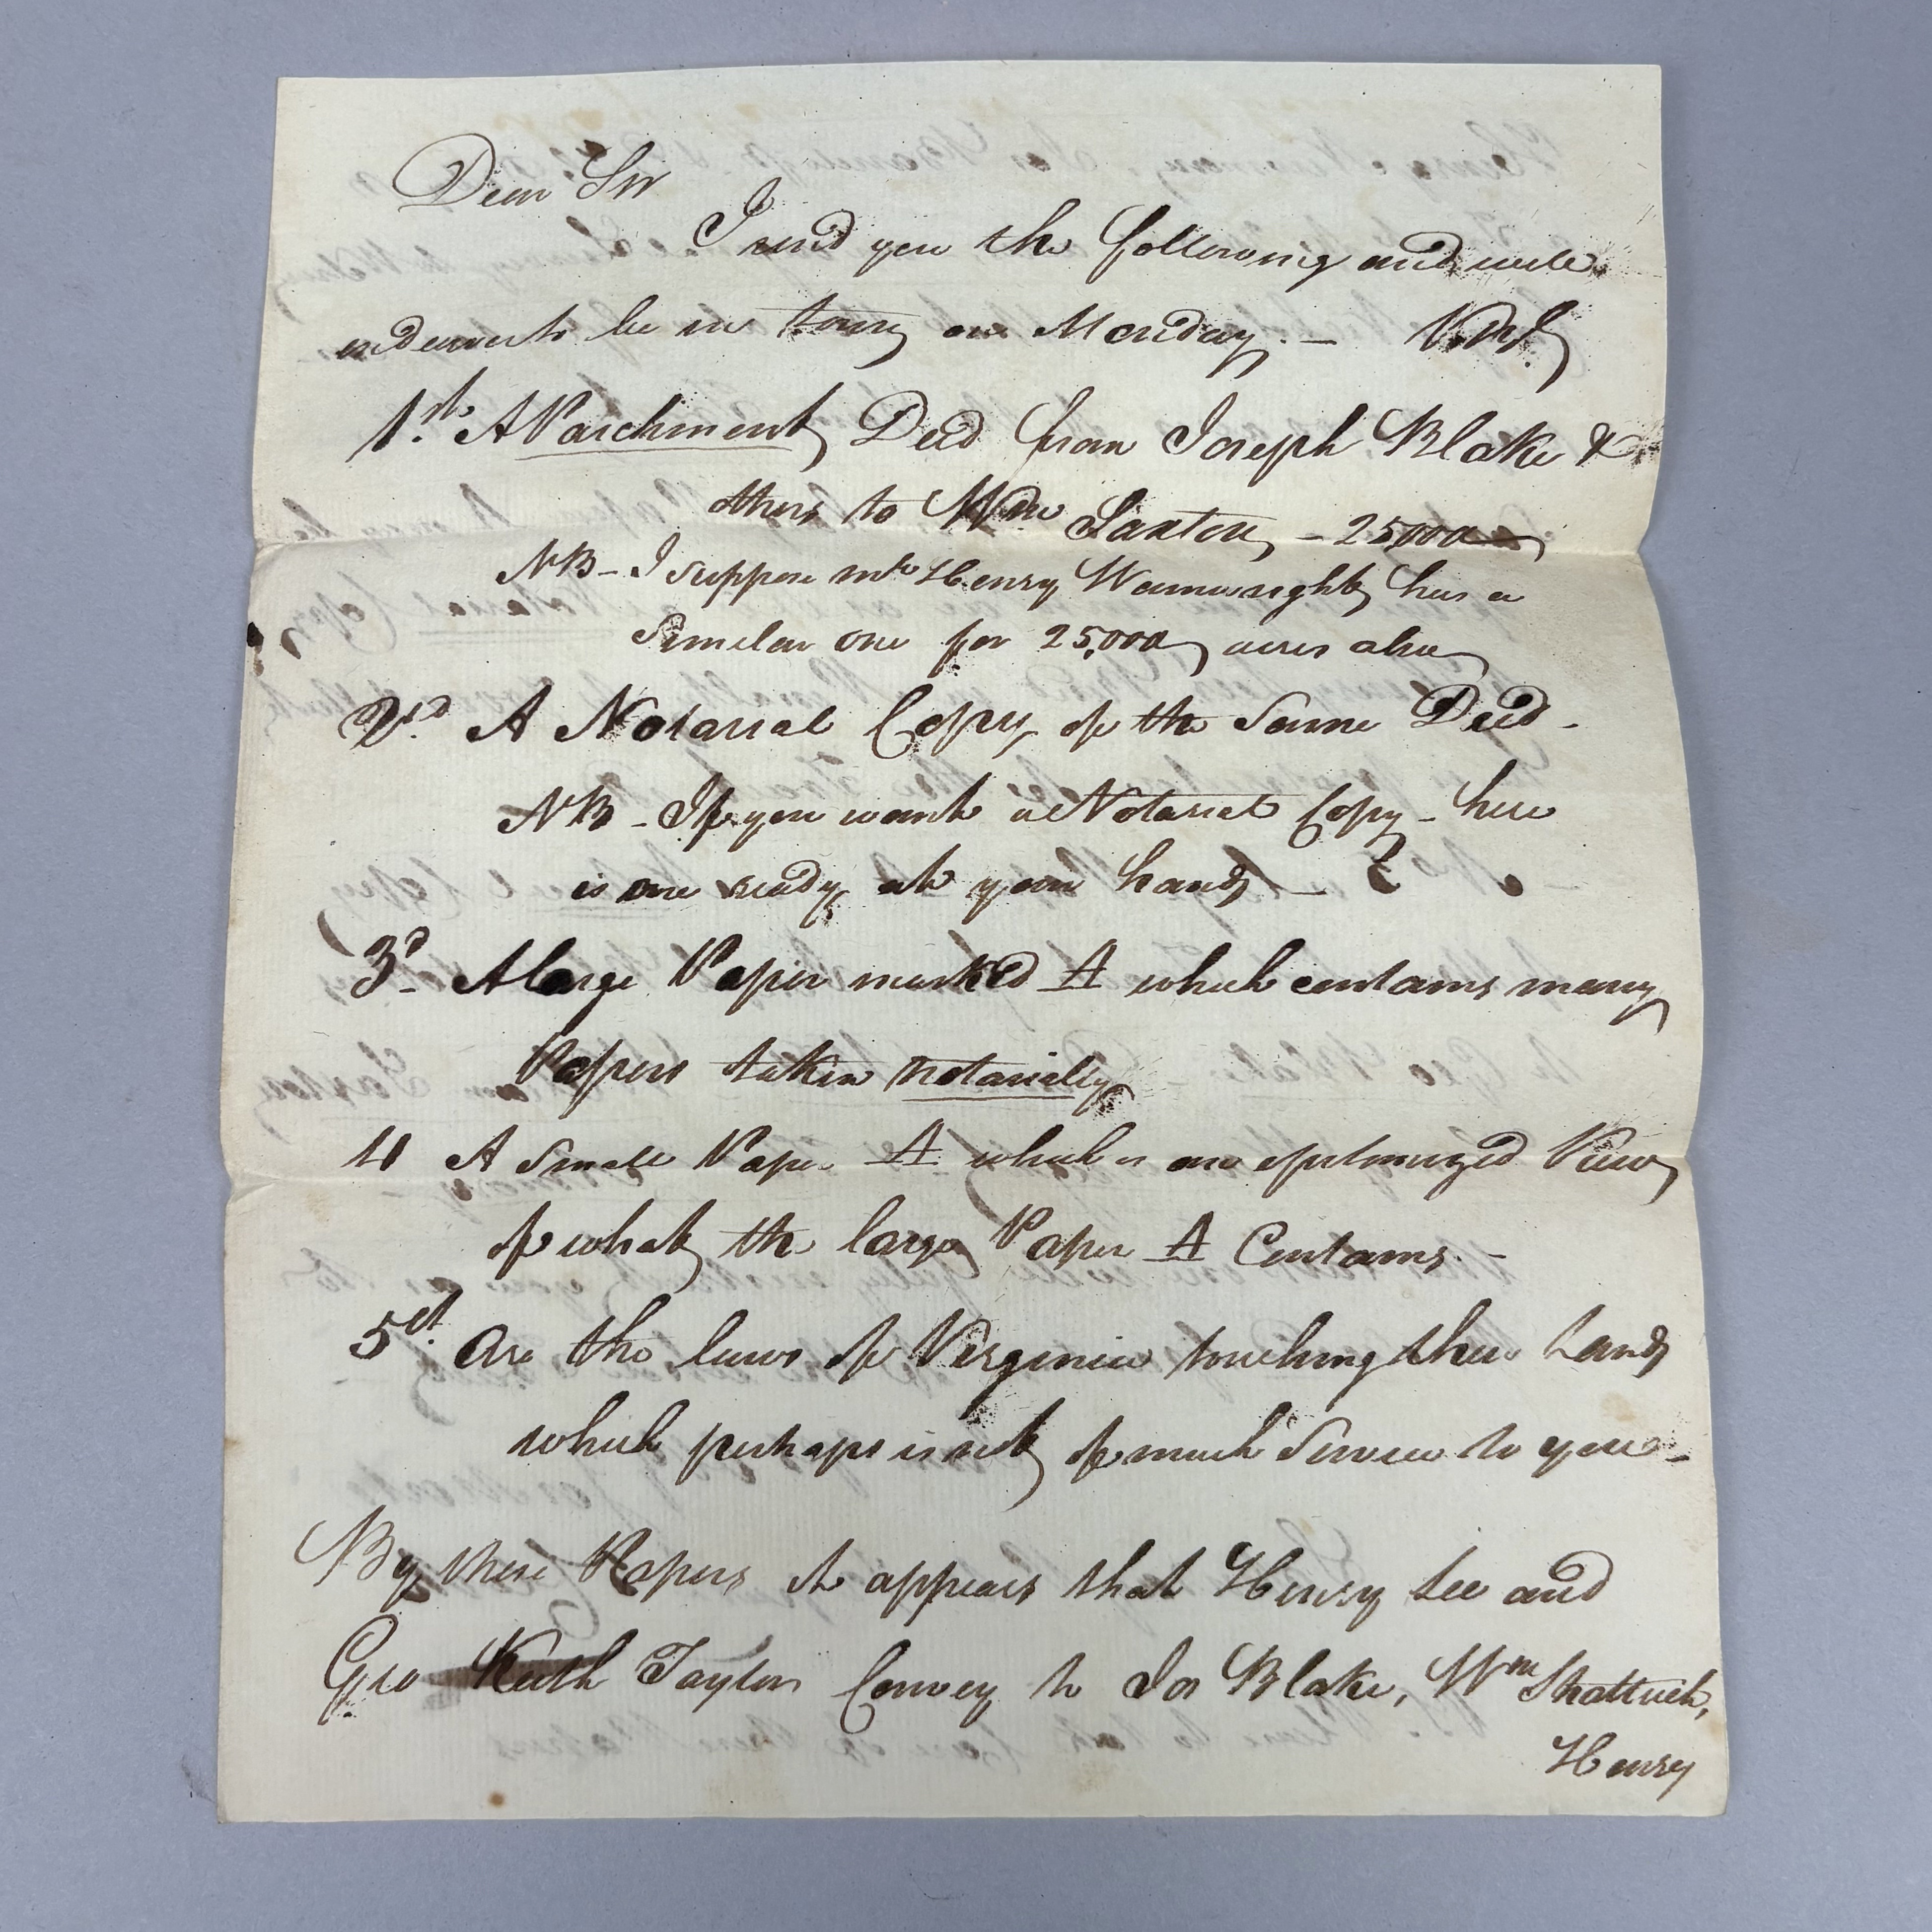 Dear Sir
I send you the following and will
endeavour to be in town on Monday. — Vizt
1st. A Parchment Deed from Joseph Blake &
others to Wm Saxton — 25,000
NB — I suppose mr Henry Wainwright has a
Similar one for 25,000 acres also
2nd. A Notarial Copy of the Same Deed —
NB — If you want a Notarial Copy — here
is one ready at your hand —
3d. A large Paper marked A which contains many
Papers taken notarially
4 A Small Paper A which is an epitomized View
of what the large Paper A Contains. —
5th. Are the laws of Virginia touching their Land
which perhaps is not of much Service to you —
By these Papers it appears that Henry Lee and
Geo Keith Taylor Convey to Jos Blake, Wm Shattuck,
Henry